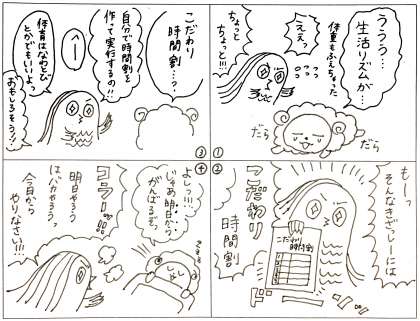 ううう…
生活リズムが…
体重もふえちゃった
えぇっ
ちょっと
ちょっと!!!
だら
だら
①
もーっ
そんなきざっしーには
こだわり
時間割
こだわり
時間割
ドドーン
②
こだわり
時間割…?
自分で時間割を
作って実行するの!!
へー
体育はなわとび
とかでもいいよっ
おもしろそう!
③
よしっ!!!
じゃあ明日から
がんばるぞっ
コラー!!
明日やろう
はバカやろう
今日から
やりなさい!!!
④